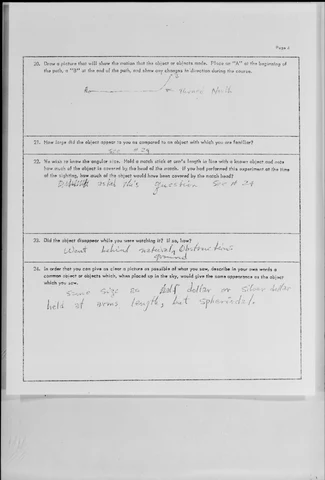 Page 4
20. Draw a picture that will show the motion that the object or objects made. Place an "A" at the beginning of
the path, a "B" at the end of the path, and show any changes in direction during the course.
A
North
21. How large did the object appear to you as compared to an object with which you are familiar?
See # 24
22. We wish to know the angular size. Hold a match stick at arm's length in line with a known object and note
how much of the object is covered by the head of the match. If you had performed this experiment at the time
of the sighting, how much of the object would have been covered by the match head?
this question See # 24
23. Did the object disappear while you were watching it? If so, how?
Went behind natural obstruction
ground
24. In order that you can give as clear a picture as possible of what you saw, describe in your own words a
common object or objects which, when placed up in the sky, would give the same appearance as the object
which you saw.
same size as half dollar or silver dollar
held at arms length, but spheroidal.